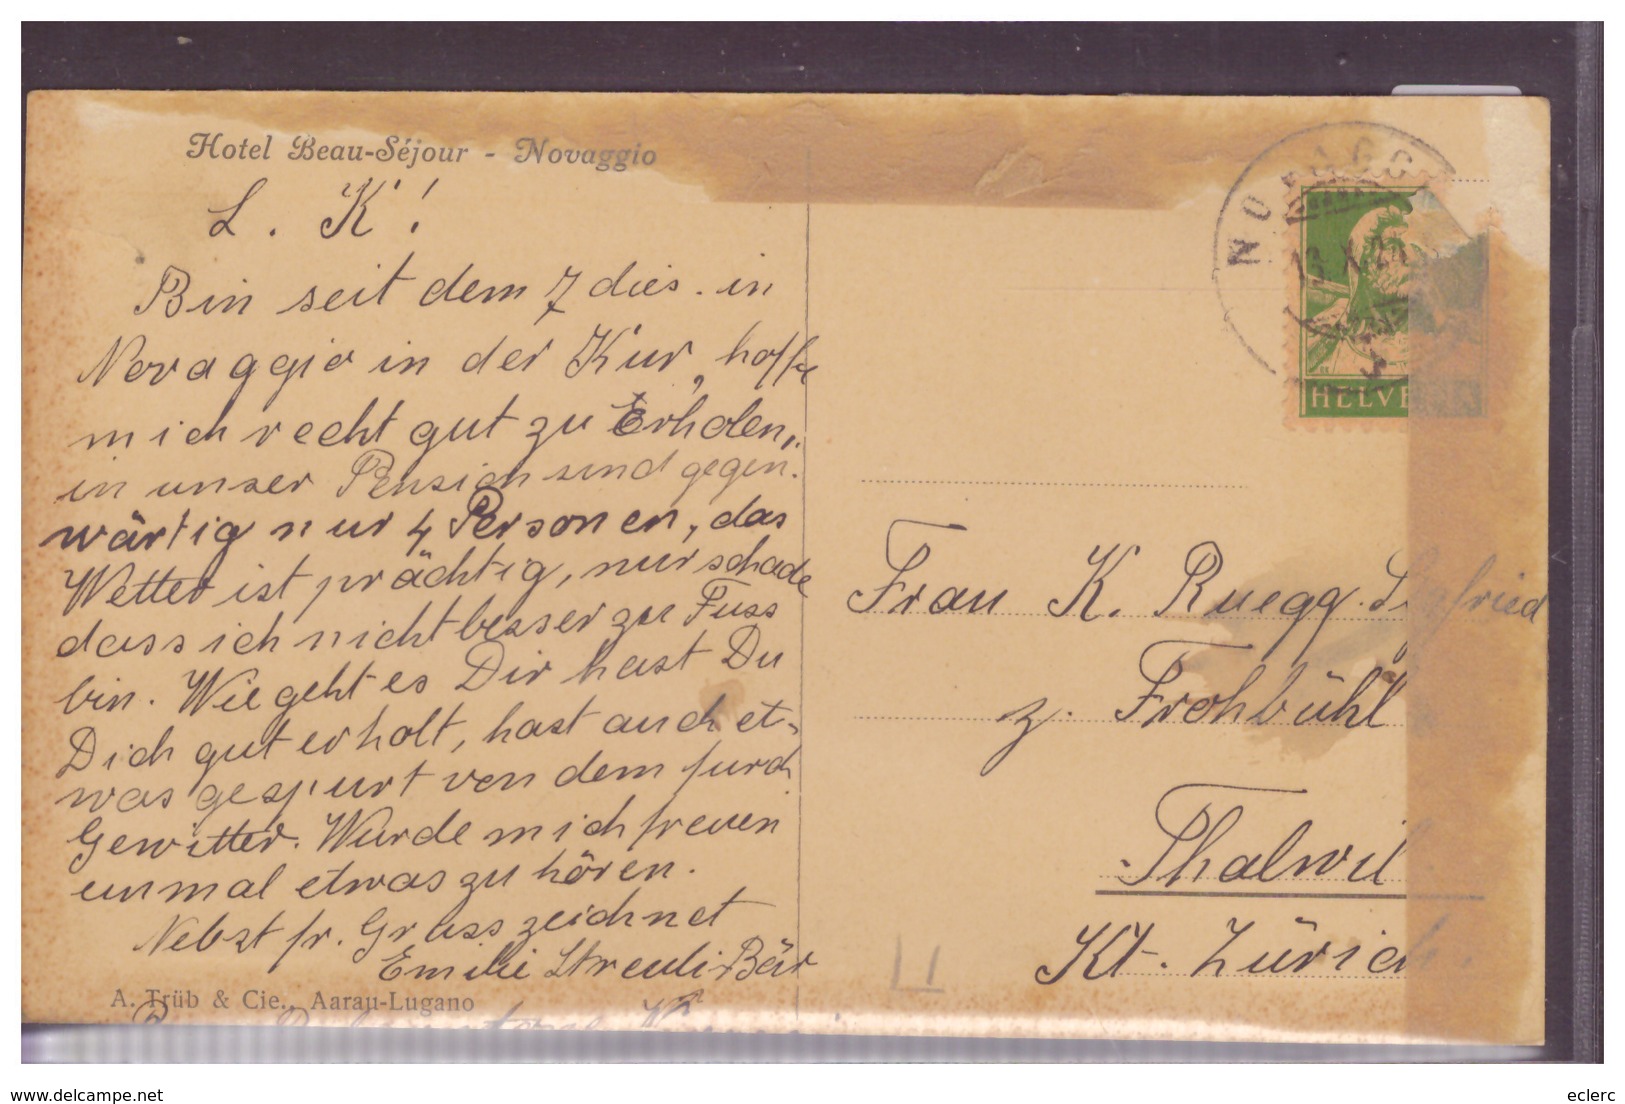 Hotel Beau-Séjour - Novaggio
L. K!
Bin seit dem 7 dies. in
Novaggio in der Kur, hoffe
mich recht gut zu Erholen,
in unser Pension sind gegen-
wärtig nur 4 Personen, das
Wetter ist prächtig, nur schade
dass ich nicht besser zu Fuss
bin. Wie geht es Dir hast Du
Dich gut erholt, hast auch et-
was gespürt von dem furch
Gewitter. Wurde mich freuen
einmal etwas zu hören.
Nebst fr. Gruss zeichnet
Emilie Streuli-Bär
A. Trüb & Cie., Aarau-Lugano
13. X. 24
HELVE
Frau K. Ruegg-Sigfried
z. Frohbühl
Thalwil
Kt. Zürich.
delcampe.net
eclerc